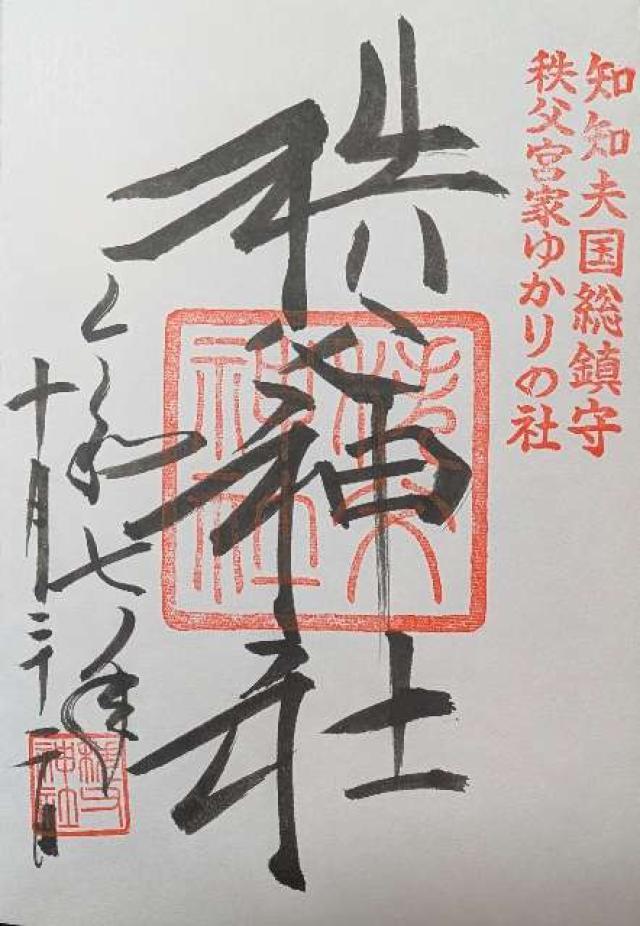 知知夫国総鎮守
秩父宮家ゆかりの社
秩父神社
秩父
神社
令和七年
十月二十二日
秩父
神社